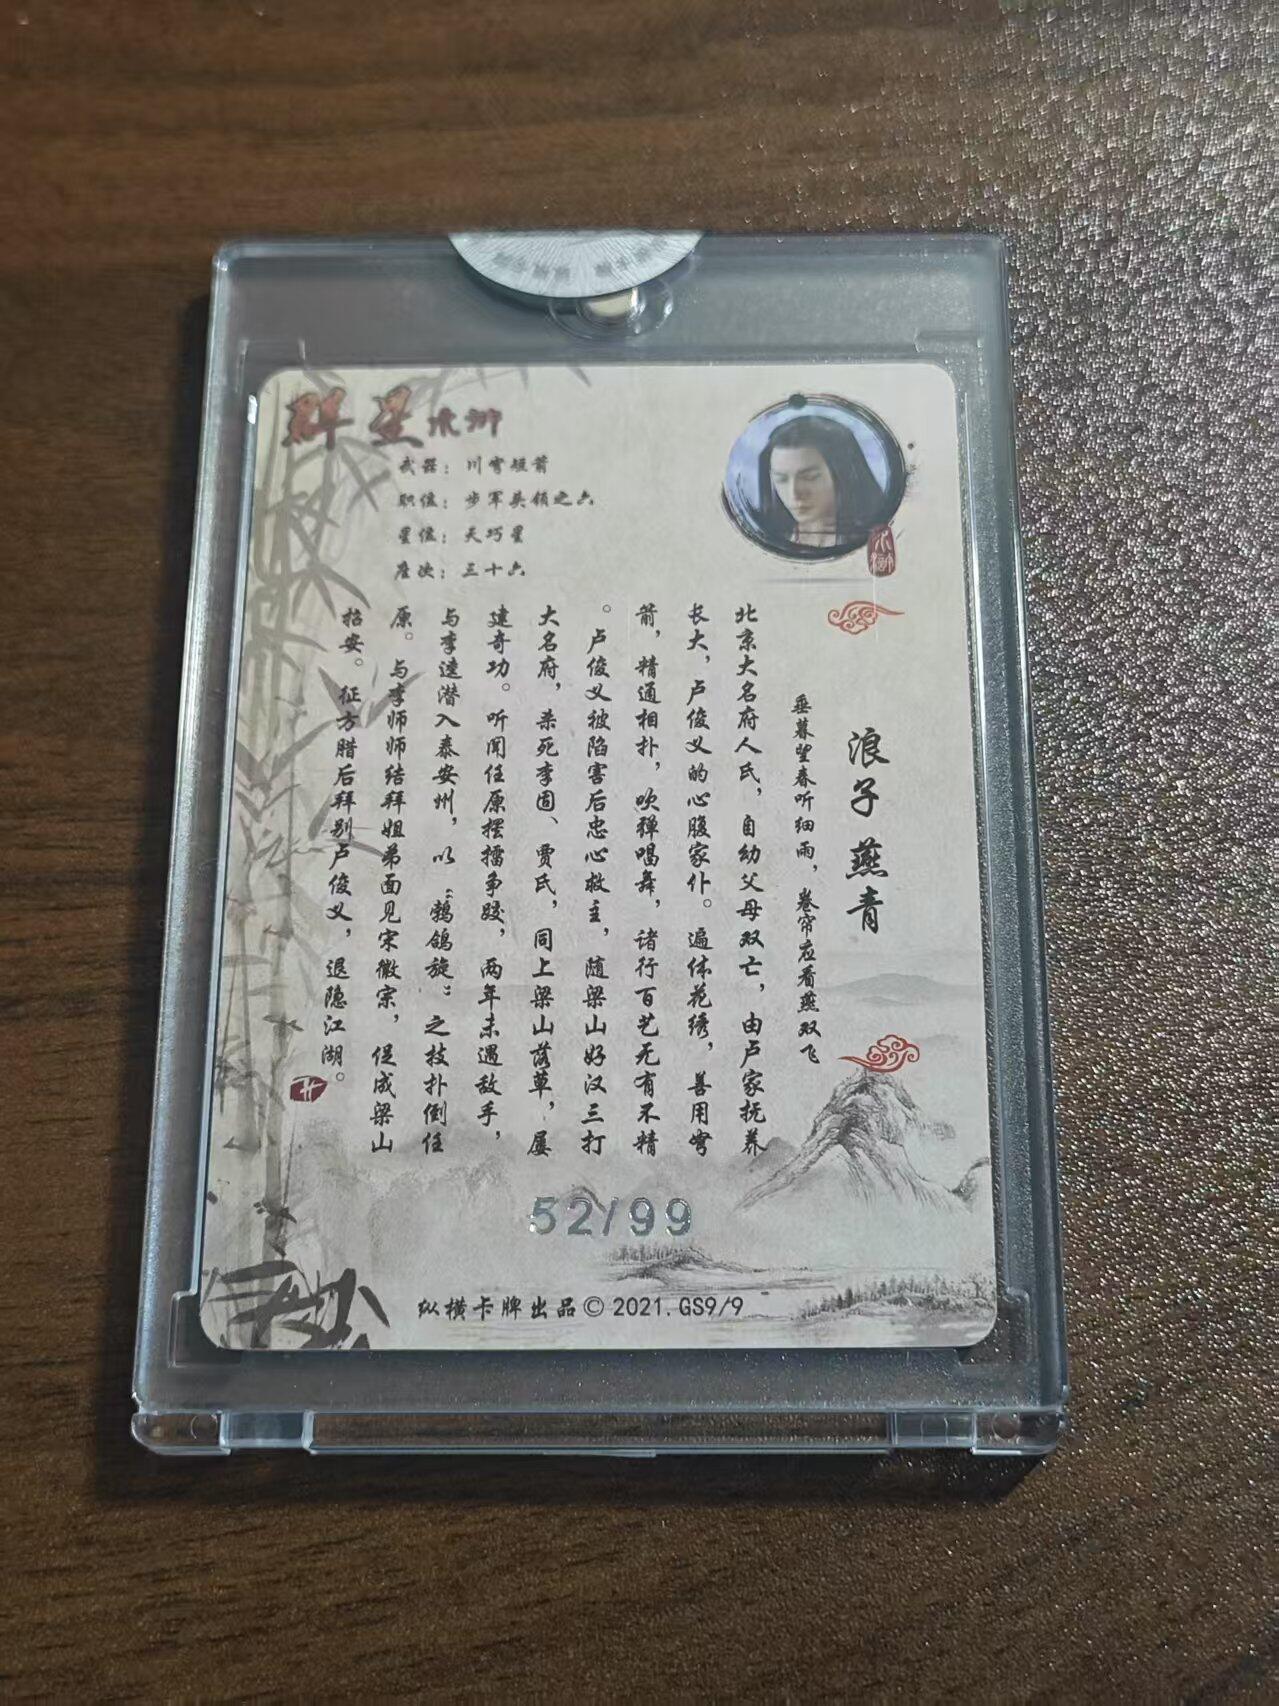 群星水浒
武器：川弩短箭
职位：步军头领之六
星位：天巧星
座次：三十六
水浒
浪子 燕青
垂暮望春听细雨，卷帘应看燕双飞
北京大名府人氏，自幼父母双亡，由卢家抚养
长大，卢俊义的心腹家仆。遍体花绣，善用弩
箭，精通相扑，吹弹唱舞，诸行百艺无有不精
。卢俊义被陷害后忠心救主，随梁山好汉三打
大名府，杀死李固、贾氏，同上梁山落草，屡
建奇功。听闻任原摆擂争跤，两年未遇敌手，
与李逵潜入泰安州，以“鹁鸽旋”之技扑倒任
原。与李师师结拜姐弟面见宋徽宗，促成梁山
招安。征方腊后拜别卢俊义，退隐江湖。
52/99
纵横卡牌出品©2021.GS9/9